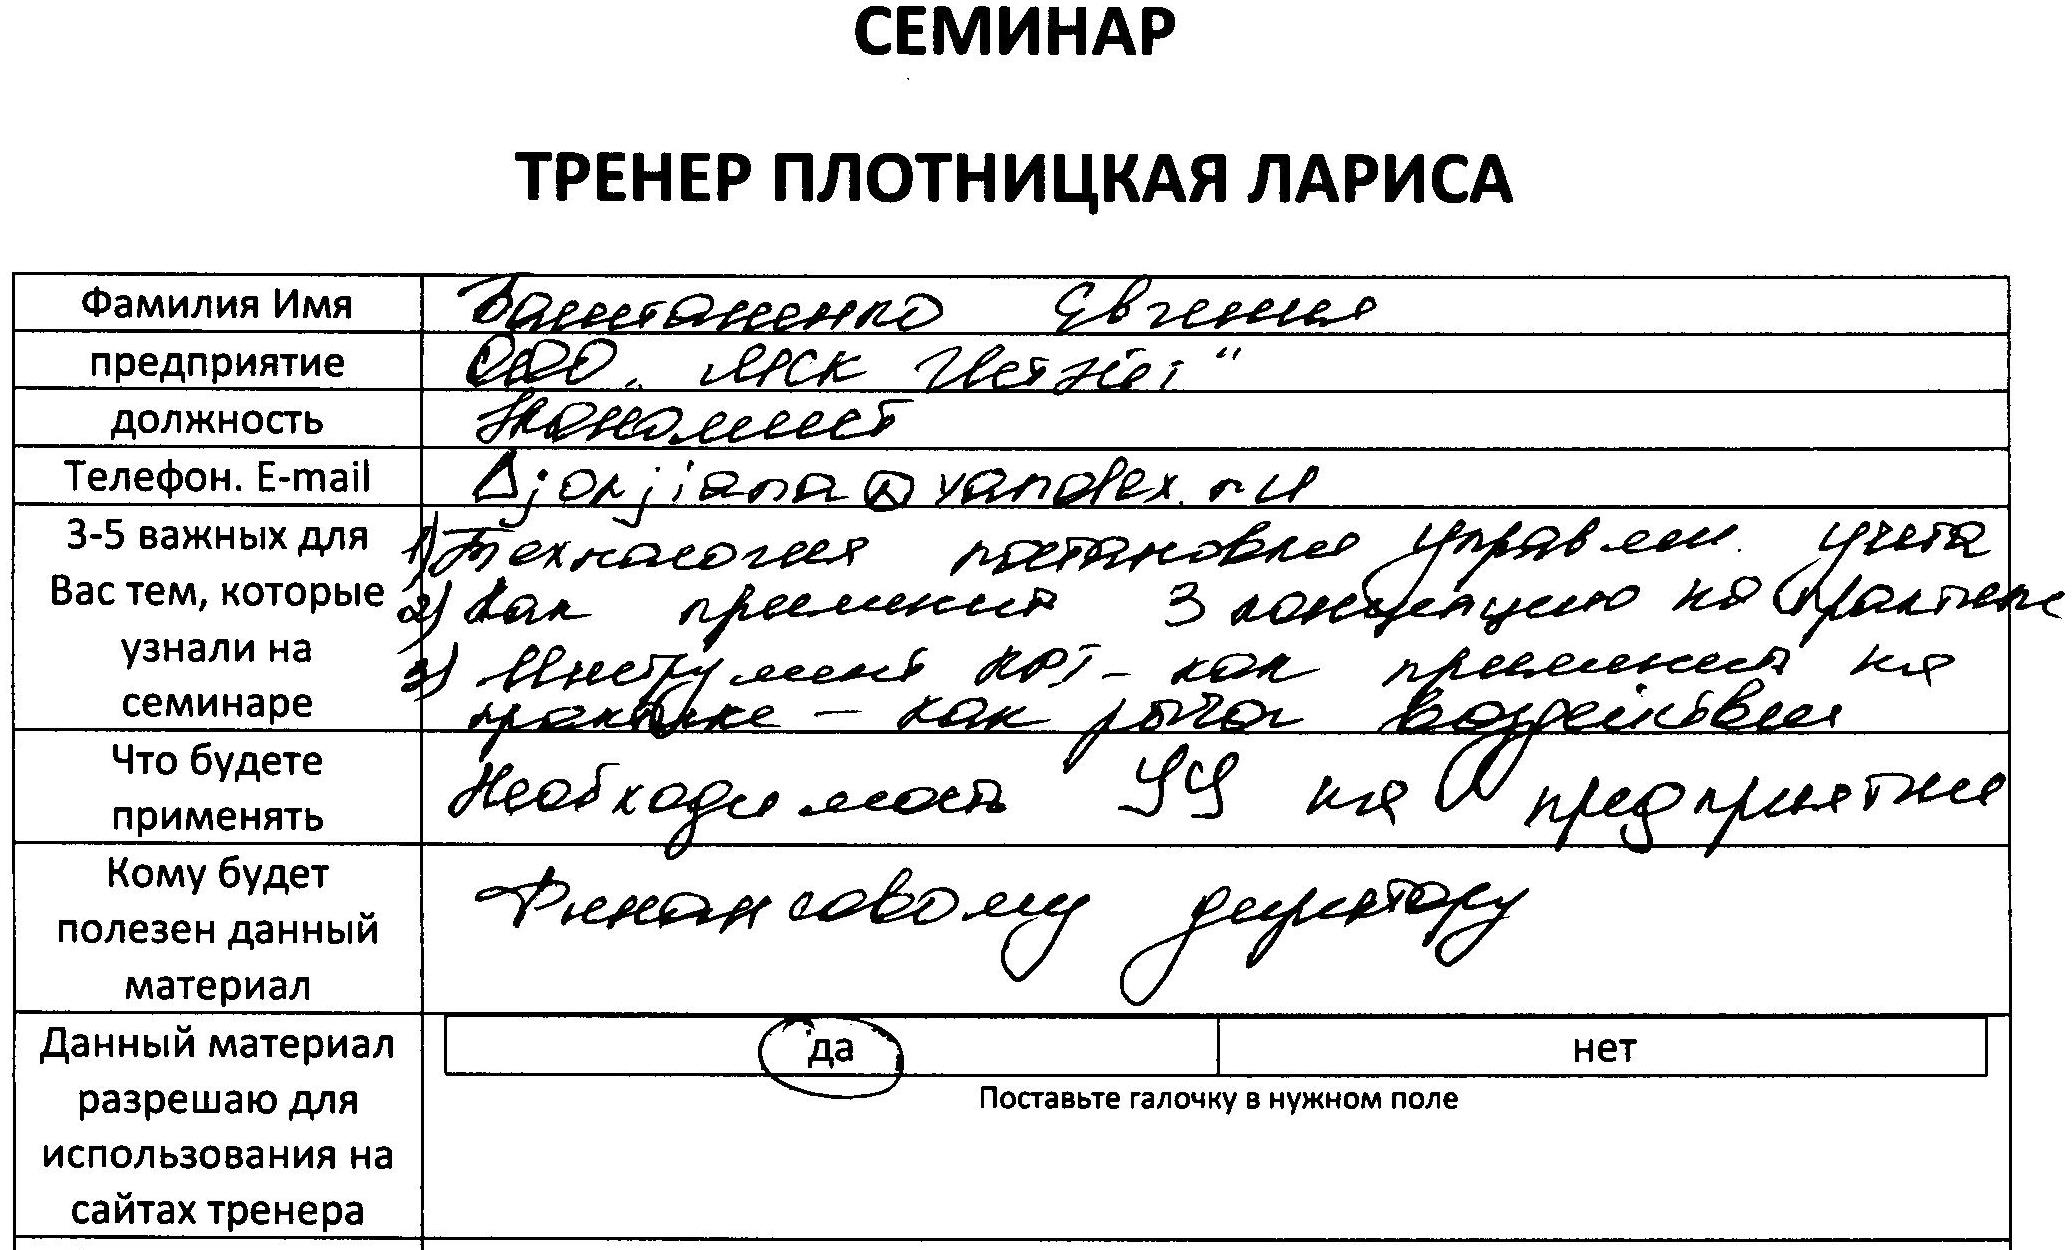 СЕМИНАР
ТРЕНЕР ПЛОТНИЦКАЯ ЛАРИСА
Фамилия Имя Баштаненко Евгения
предприятие ООО „МСК
должность Экономист
Телефон. E-mail Djorjiana@yandex.ru
3-5 важных для 1) Технология постановки управлен. учета
Вас тем, которые 2) Как применить 3 концепцию на практике
узнали на 3) Инструмент KPI - как применить на
семинаре практике – как рычаг воздействия
Что будете
применять Необходимость УУ на предприятии
Кому будет Финансовому директору
полезен данный
материал
Данный материал да нет
разрешаю для Поставьте галочку в нужном поле
использования на
сайтах тренера